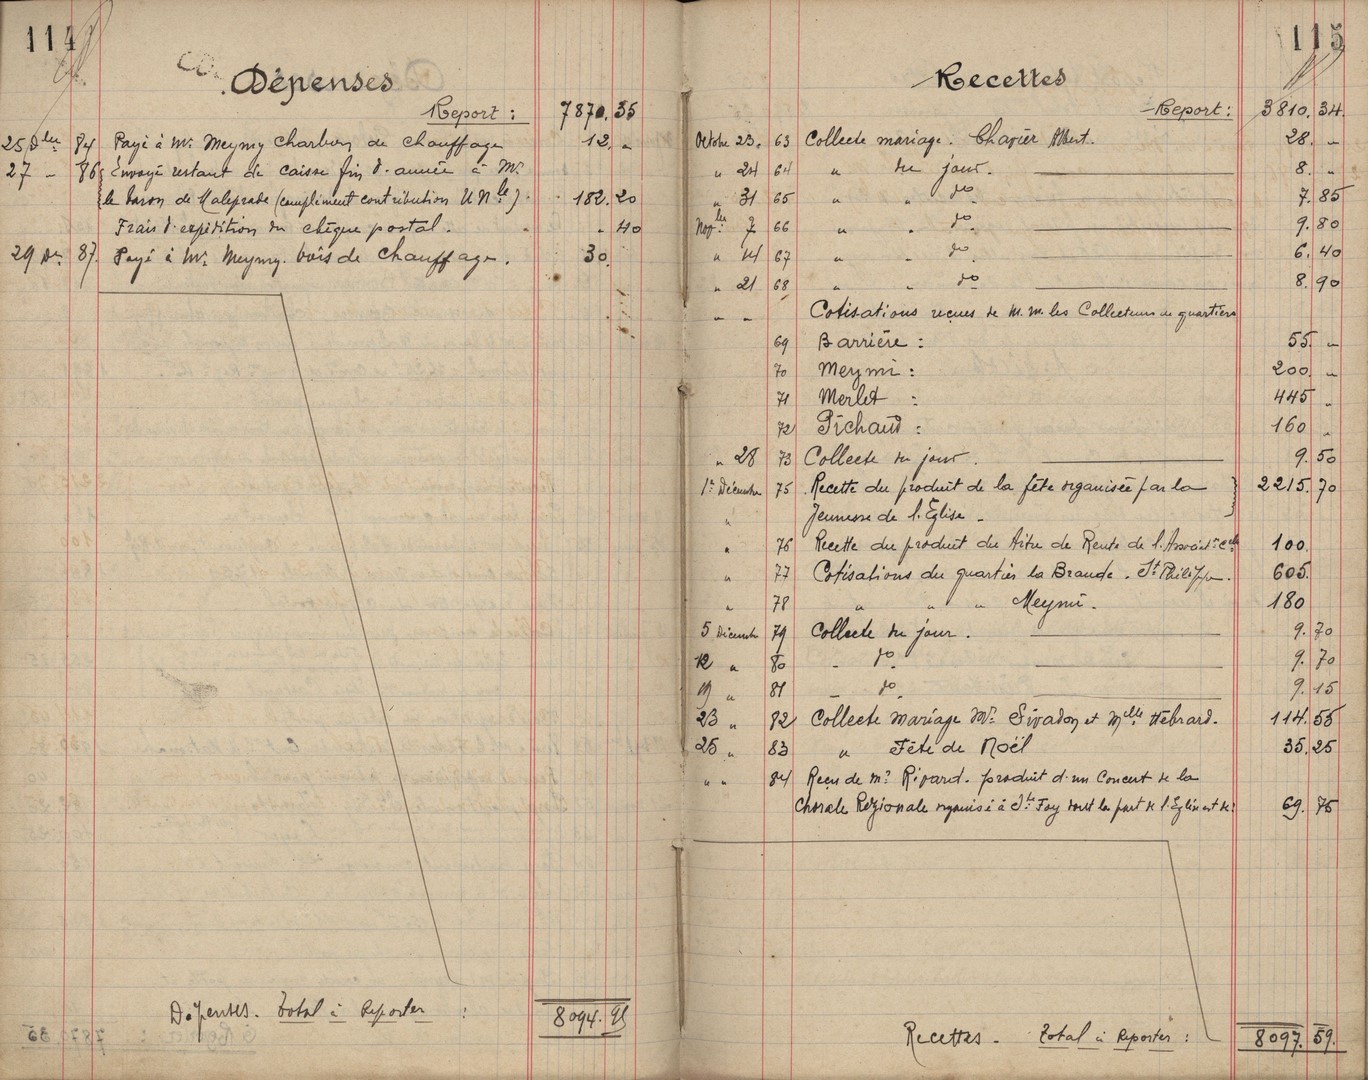 114
Dépenses
Report : 7870. 35
25 Dbre 84 Payé à Mr. Meymy Charbon de chauffage 12. "
27 - 86 Envoyé restant de caisse fin d'année à Mr.
le baron de Maleprade (complément contribution U Nle) . 182. 20
Frais d'expédition du chèque postal. " 40
29 De. 87. Payé à Mr. Meymy. bois de chauffage. 30.
Dépenses. Total à Reporter : 8094. 95
115
Recettes
Report : 3810. 34.
Octobre 23. 63 Collecte mariage. Chavier Albert. 28. "
" 24 64 " du jour. 8. "
" 31 65 " " do 7. 85
Nov.bre 7 66 " " do 9. 80
" 14 67 " " do 6. 40
" 21 68 " " do 8. 90
" " Cotisations reçues de M.M. les Collecteurs de quartiers
69 Barrière : 55. "
70 Meymi : 200. "
71 Merlet : 445 "
72 Pichaud : 160 "
" 28 73 Collecte du jour. 9. 50
1er Décembre 75 Recette du produit de la fête organisée par la 2215. 70
" Jeunesse de l'Église -
" 76 Recette du produit du titre de Rente de l'Assoction Celle 100.
" 77 Cotisations du quartier la Braude. St Philippe. 605.
" 78 " " " Meymi. 180
5 Décembre 79 Collecte du jour. 9. 70
12 " 80 - do 9. 70
19 " 81 - do 9. 15
23 " 82 Collecte mariage Mr. Sivadon et Melle Hébrard. 114. 55
25 " 83 " Fête de Noël 35. 25
" " 84 Reçu de Mr Rivard. produit d'un Concert de la
Chorale Régionale organisé à Ste Foy dont la part de l'Eglise est de : 69. 75
Recettes - Total à Reporter : 8097. 59.